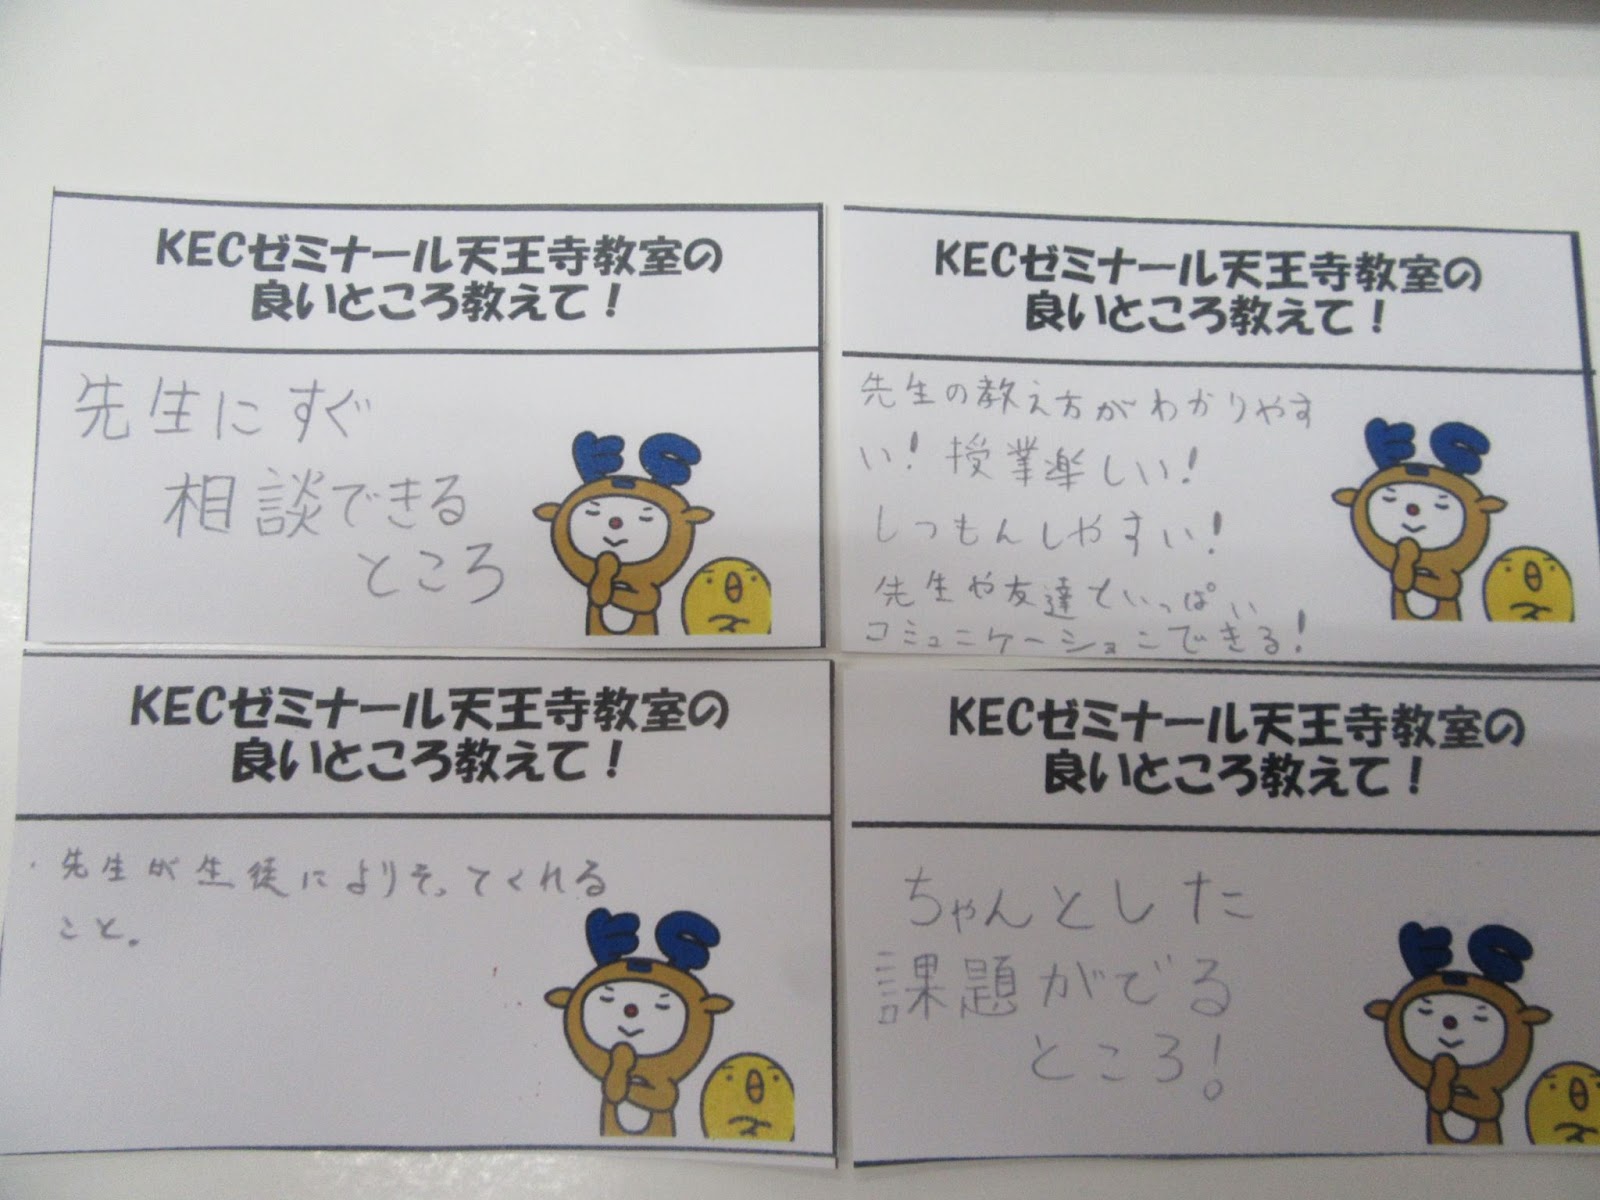 KECゼミナール天王寺教室の
良いところ教えて！
先生にすぐ
相談できる
ところ
KECゼミナール天王寺教室の
良いところ教えて！
先生の教え方がわかりやす
い！授業楽しい！
しつもんしやすい！
先生や友達ていっぱい
コミュニケーションできる！
KECゼミナール天王寺教室の
良いところ教えて！
・先生が生徒によりそってくれる
こと。
KECゼミナール天王寺教室の
良いところ教えて！
ちゃんとした
課題がでる
ところ！